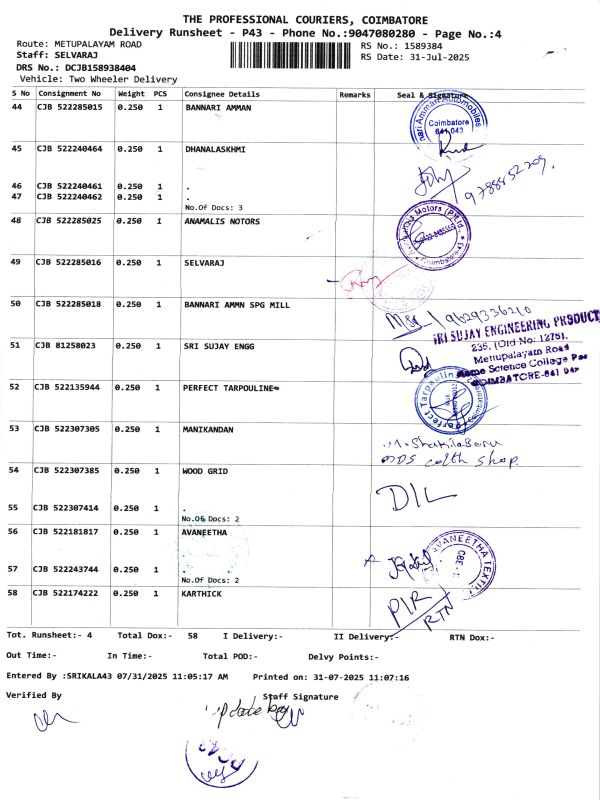 THE PROFESSIONAL COURIERS, COIMBATORE
Delivery Runsheet - P43 - Phone No.:9047080280 - Page No.:4
Route: METUPALAYAM ROAD
RS No.: 1589384
Staff: SELVARAJ
RS Date: 31-Jul-2025
DRS No.: DCJB158938404
Vehicle: Two Wheeler Delivery
S No Consignment No Weight PCS Consignee Details Remarks Seal & Signature
44 CJB 522285015 0.250 1 BANNARI AMMAN
Coimbatore
641 043
45 CJB 522240464 0.250 1 DHANALASKHMI
46 CJB 522240461 0.250 1 .
47 CJB 522240462 0.250 1 .
No.Of Docs: 3
9788852709.
48 CJB 522285025 0.250 1 ANAMALIS NOTORS
49 CJB 522285016 0.250 1 SELVARAJ
50 CJB 522285018 0.250 1 BANNARI AMMN SPG MILL
9629336210
51 CJB 81258023 0.250 1 SRI SUJAY ENGG
SRI SUJAY ENGINEERING PRODUCT
235, (Old No: 1276),
Mettupalayam Road
Science College Pos
COIMBATORE-641
52 CJB 522135944 0.250 1 PERFECT TARPOULINE
Perfect Tarpaulin
53 CJB 522307305 0.250 1 MANIKANDAN
MDS colth shop.
54 CJB 522307385 0.250 1 WOOD GRID
D/L
55 CJB 522307414 0.250 1 .
No.Of Docs: 2
56 CJB 522181817 0.250 1 AVANEETHA
57 CJB 522243744 0.250 1 .
No.Of Docs: 2
AVANEETHA TEXTIL
CBE
58 CJB 522174222 0.250 1 KARTHICK
P/R
RTN
Tot. Runsheet:- 4 Total Dox:- 58 I Delivery:- II Delivery:- RTN Dox:-
Out Time:- In Time:- Total POD:- Delvy Points:-
Entered By :SRIKALA43 07/31/2025 11:05:17 AM Printed on: 31-07-2025 11:07:16
Verified By Staff Signature